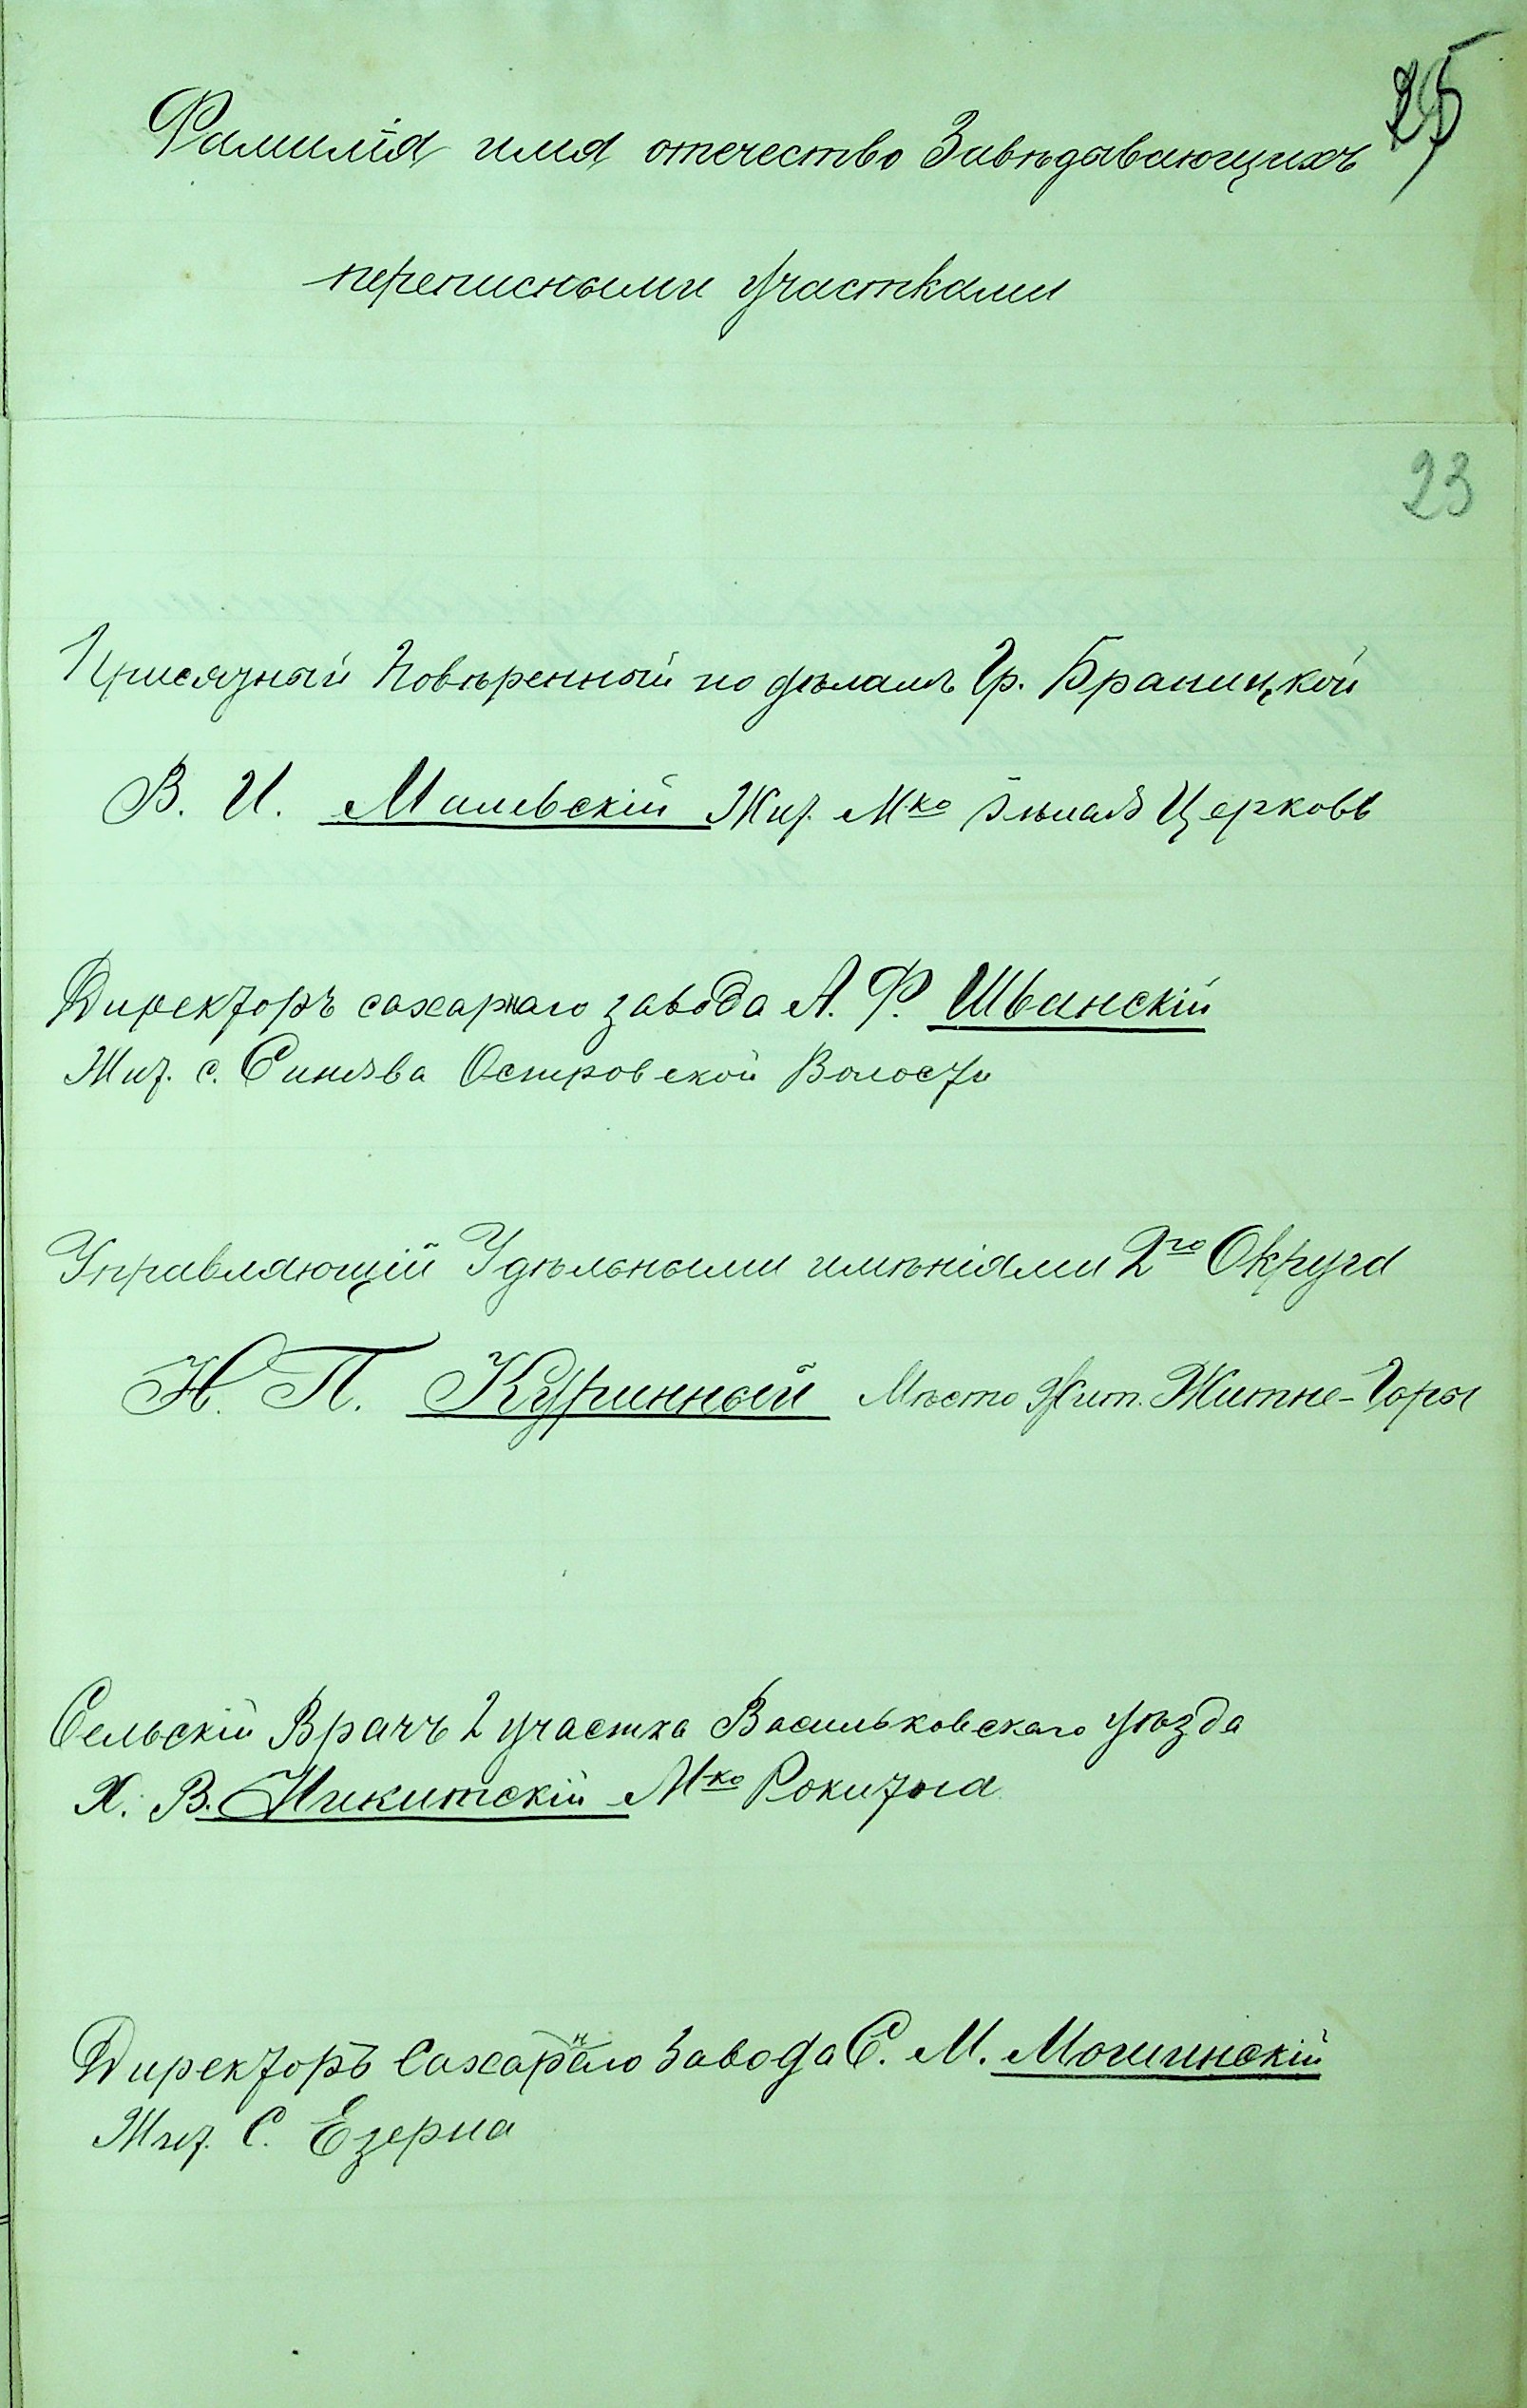 25
Фамилія имя отчество Завѣдывающихъ
переписными участками
23
Присяжный Повѣренный по дѣламъ Гр. Браницкой
В. И. Милевскій Жит. М-ко Бѣлая Церковь
Директоръ сахарнаго завода А. Ф. Шванскій
Жит. с. Синява Островской Волости
Управляющій Удѣльными имѣніями 2го Округа
Н. П. Куринный Мѣсто Жит. Житне-Горы
Сельскій Врачъ 2 участка Васильковскаго уѣзда
Х. В. Никитскій М-ко Рокитна
Директоръ Сахарнаго Завода С. М. Могилинскій
Жит. С. Езерна